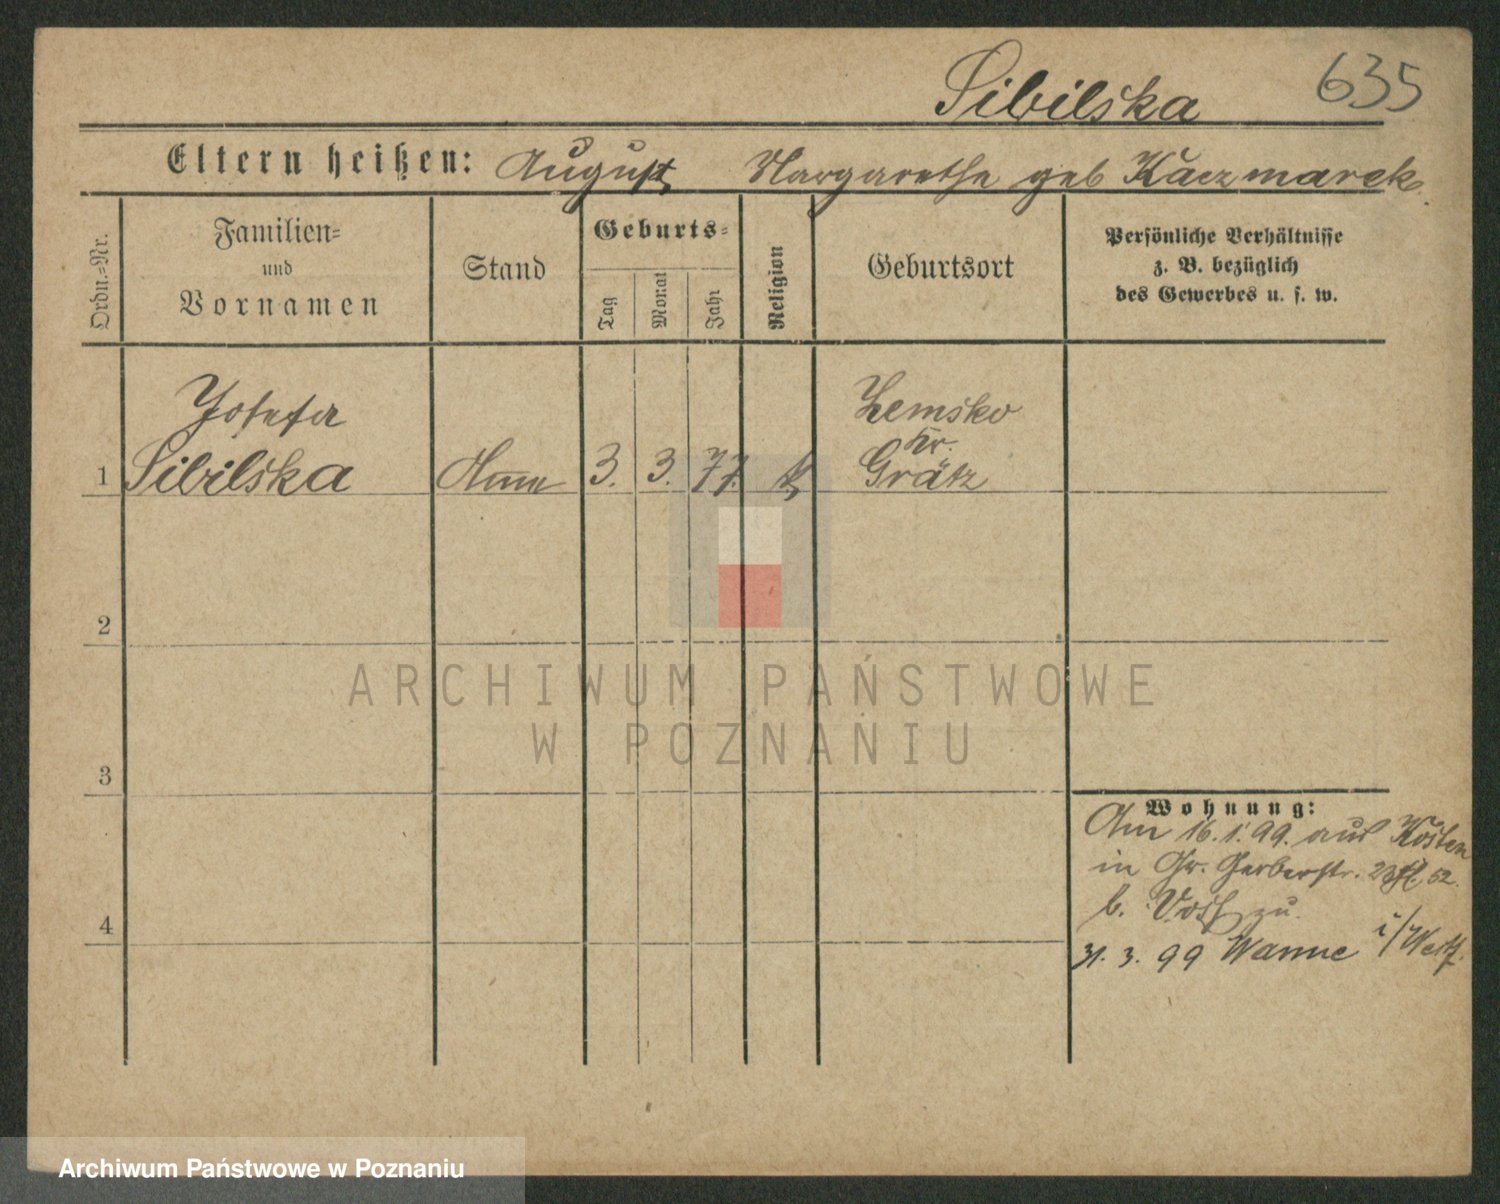 Sibilska 635
Eltern heißen: August Margarethe geb Kaczmarek.
Ordn.=Nr.
Familien=
und
Vornamen
Stand
Geburts=
Tag
Monat
Jahr
Religion
Geburtsort
Persönliche Verhältnisse
z. B. bezüglich
des Gewerbes u. s. w.
Josefa
1 Sibilska
3. 3. 77. k
Zemsko
Kr.
Grätz
2
3
4
Wohnung:
Am 16.1.99. aus Kosten
in Gr. Gerberstr. 52.
b. zu.
31. 3. 99 Wanne i/Westf.
ARCHIWUM PAŃSTWOWE
W POZNANIU
Archiwum Państwowe w Poznaniu